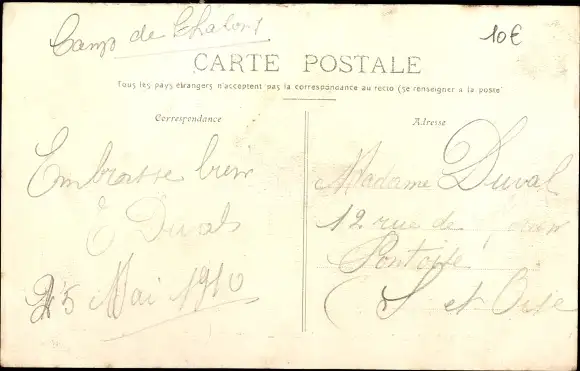 Camp de Chalons
10€
CARTE POSTALE
Tous les pays étrangers n'acceptent pas la correspondance au recto (se renseigner à la poste)
Correspondance
Embrasse bien
E Duval
25 Mai 1910
Adresse
Madame Duval
12 rue de
Pontoise
S et Oise